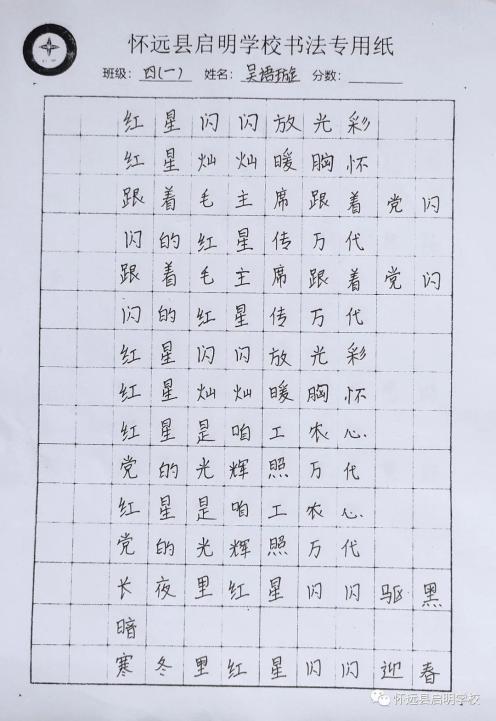 怀远县启明学校书法专用纸
班级：四(一) 姓名：吴语璇 分数：
红星闪闪放光彩
红星灿灿暖胸怀
跟着毛主席跟着党闪
闪的红星传万代
跟着毛主席跟着党闪
闪的红星传万代
红星闪闪放光彩
红星灿灿暖胸怀
红星是咱工农心
党的光辉照万代
红星是咱工农心
党的光辉照万代
长夜里红星闪闪驱黑
暗
寒冬里红星闪闪迎春
怀远县启明学校